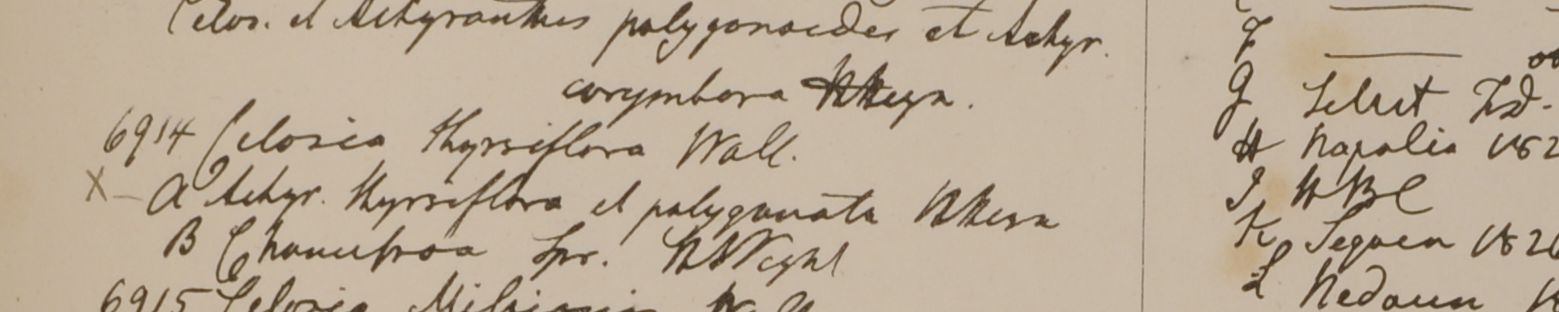 Celos. et Achyranthes polygonoides et Achyr.
corymbosa HHeyn.
6914 Celosia thyrsiflora Wall.
X – A Achyr. thyrsiflora et polygonata HHeyn
B Chamissoa Spr. HWight
6915 Celosia Wall
F
G Silhet Wd.
H Napalia 182
I HBC
K Segaen 1826
L